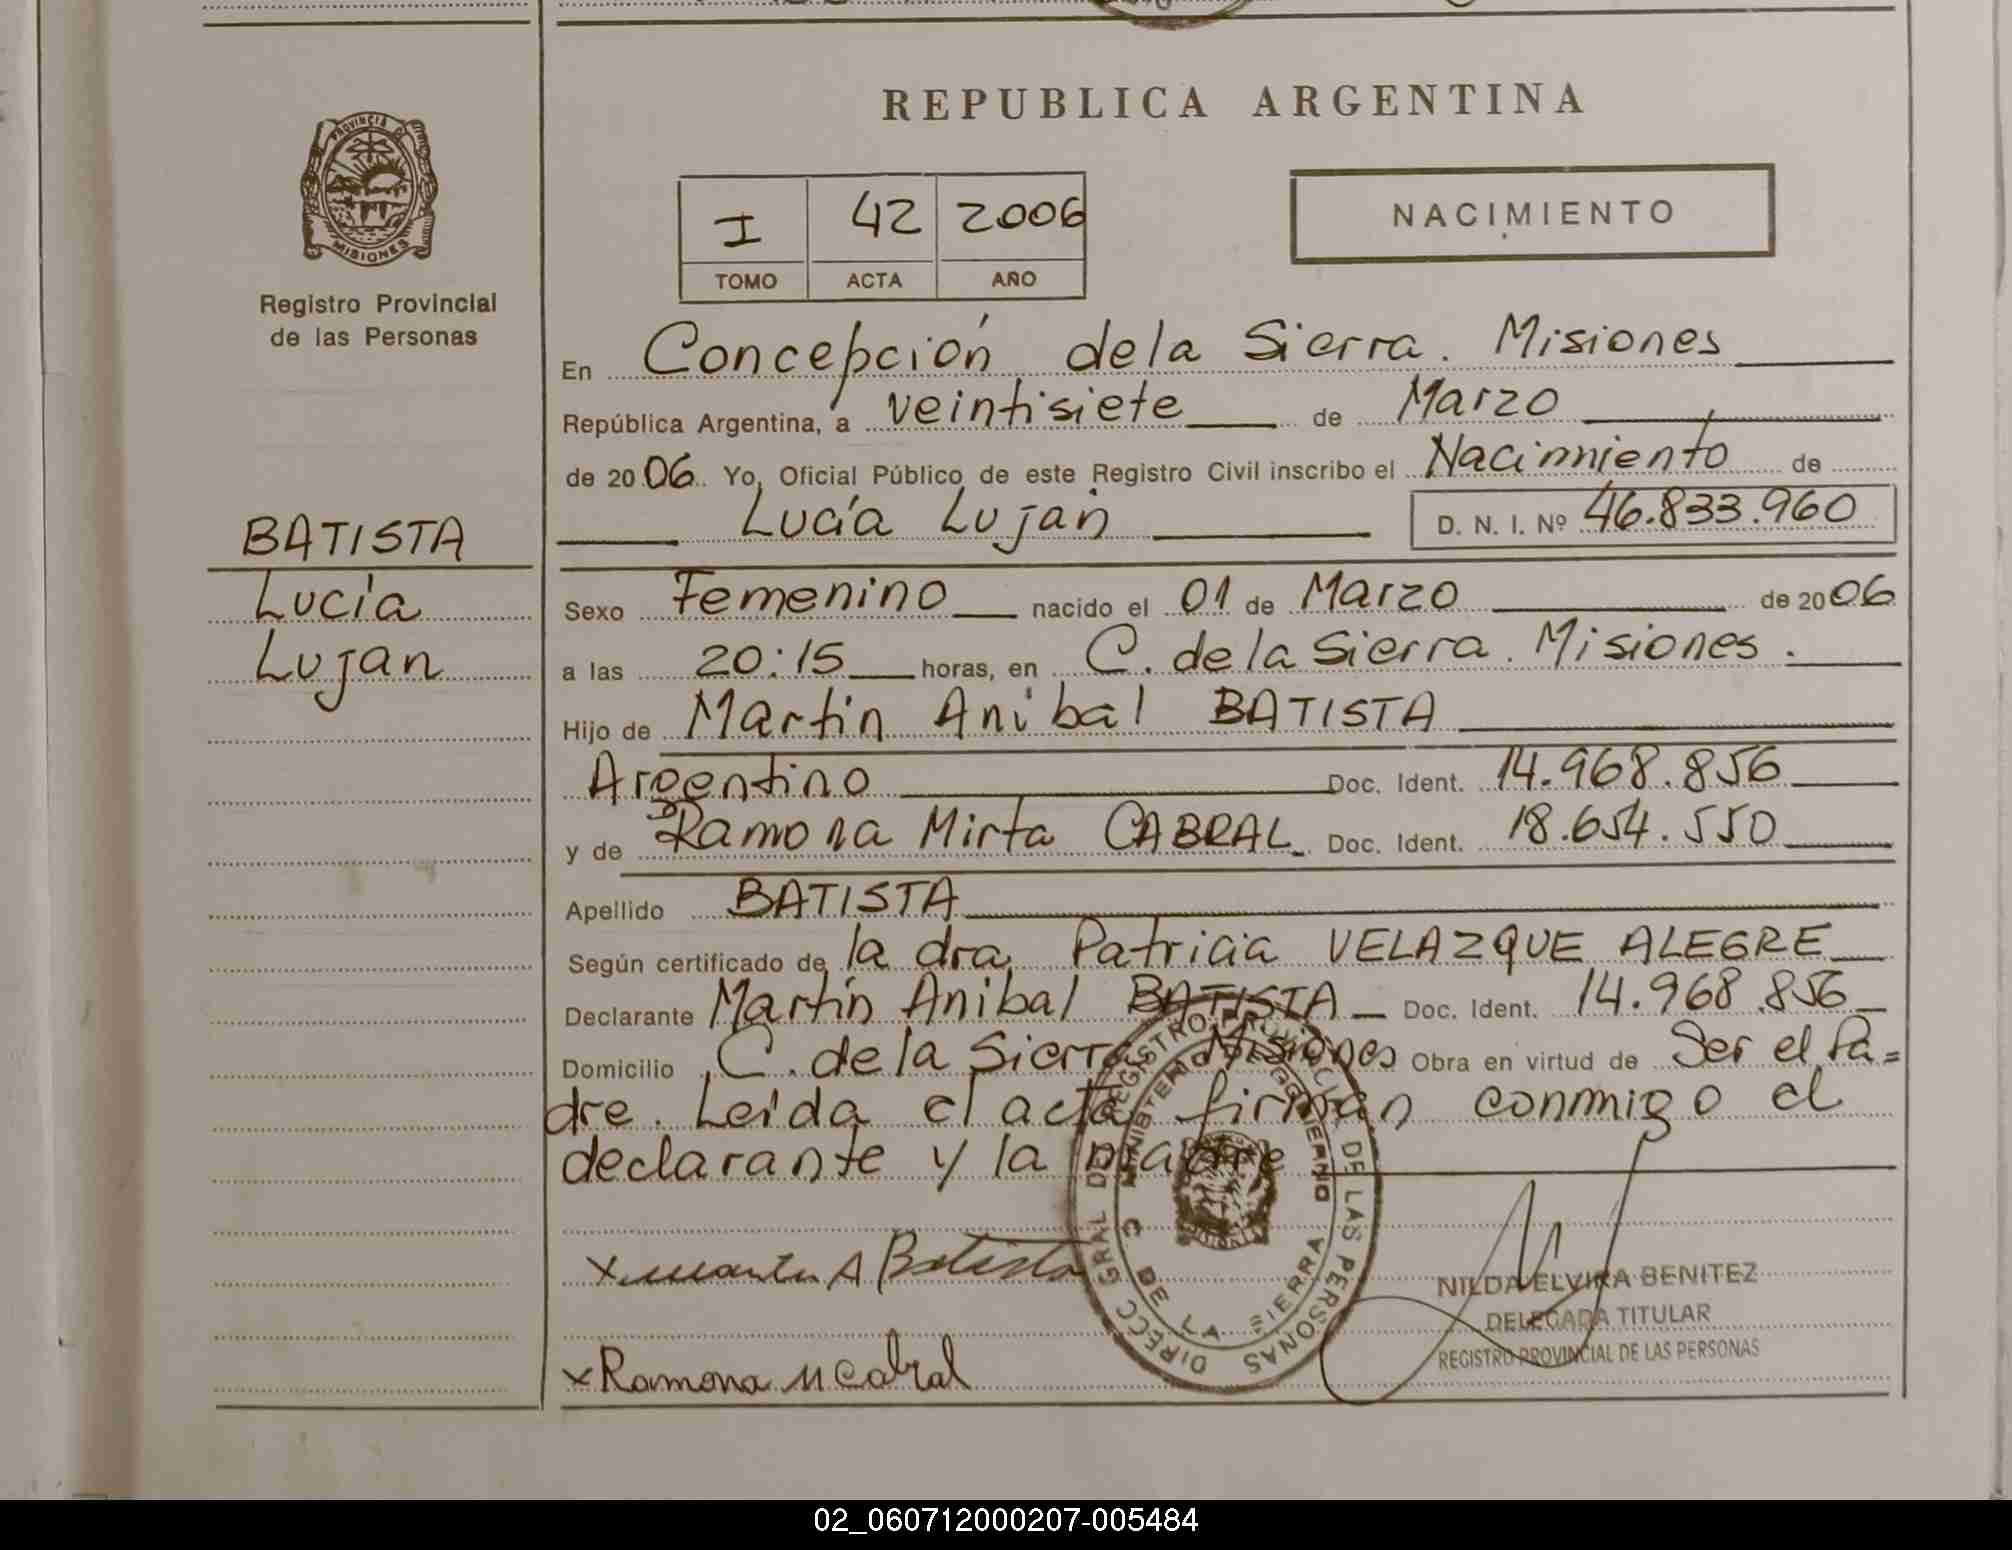 REPUBLICA ARGENTINA
PROVINCIA D
MISIONES
Registro Provincial
de las Personas
I 42 2006
TOMO ACTA AÑO
NACIMIENTO
En Concepción de la Sierra. Misiones
República Argentina, a veintisiete de Marzo
de 2006. Yo, Oficial Público de este Registro Civil inscribo el Nacimiento de
Lucía Lujan D. N. I. Nº 46.833.960
BATISTA
Lucía
Lujan
Sexo Femenino nacido el 01 de Marzo de 2006
a las 20:15 horas, en C. de la Sierra. Misiones.
Hijo de Martin Anibal BATISTA
Argentino Doc. Ident. 14.968.856
y de Ramona Mirta CABRAL Doc. Ident. 18.654.550
Apellido BATISTA
Según certificado de la dra. Patricia VELAZQUE ALEGRE
Declarante Martín Anibal BATISTA Doc. Ident. 14.968.856
Domicilio C. de la Sierra Misiones Obra en virtud de Ser el Pa=
dre. Leida el acta firman conmigo el
declarante y la madre
DIRECC GRAL DE REGISTRO PROVINCIAL DE LAS PERSONAS
MINISTERIO DE GOBIERNO
C DE LA SIERRA
x Martin A Batista
x Ramona M Cabral
NILDA ELVIRA BENITEZ
DELEGADA TITULAR
REGISTRO PROVINCIAL DE LAS PERSONAS
02_060712000207-005484